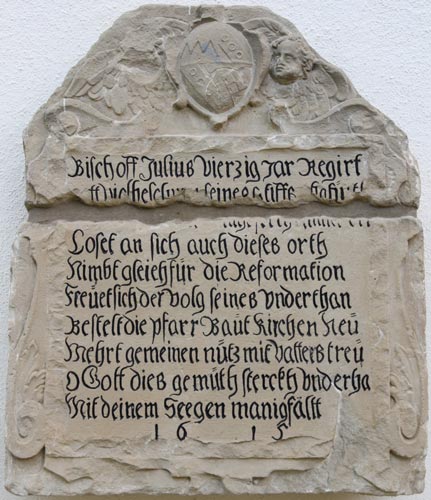 Bischoff Julius Vierzig Jar Regirt
seines stiffts
Loset an sich auch dieses orth
Nimbt gleich für die Reformation
Freuet sich der volg seines vnderthan
Bestelt die pfarr Baut Kirchen Neü
Mehrt gemeinen nütz mit Vatters treü
O Gott dies gemüth sterckh vnd erha
Mit deinem Seegen manigfällt
1615